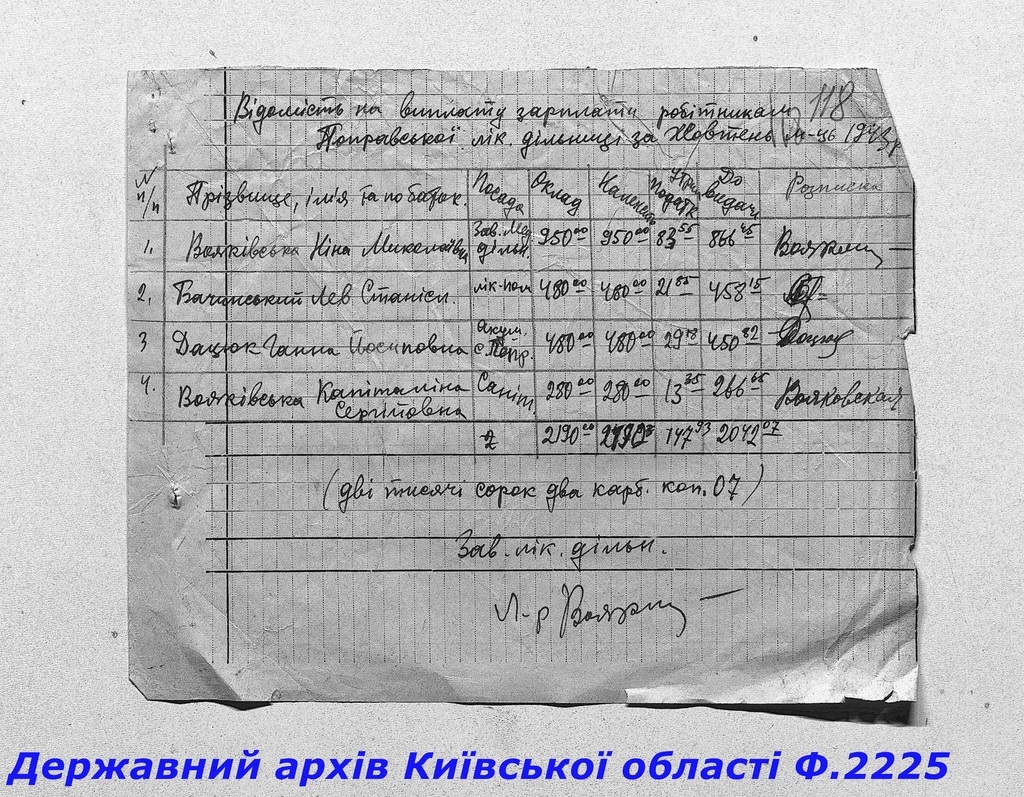 118
Відомість на виплату зарплати робітникам
Поправської лік. дільниці за Жовтень м-ць 1943 р
№ п/п Прізвище, ім'я та по батьк. Посада Оклад Податк До видачі Розписка
1. Вояківська Ніна Миколаївн Зав. Мед. дільн. 950 00 950 00 83 55 866 45
2. Бачинський Лев Станісл. лік-пом 480 00 480 00 21 85 458 15
3 Дацюк Ганна Йосиповна Акуш. с. Попр. 480 00 480 00 29 18 450 82 Дацюк
4. Вояківська Капіталіна Сергіївовна Саніт. 280 00 280 00 13 35 266 65 Вояковская
2190 00 147 93 2042 07
(дві тисячі сорок два карб. коп. 07)
Зав. лік. дільн.
Л-р
Державний архів Київської області Ф.2225